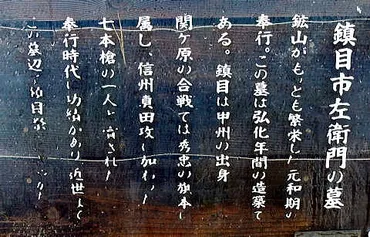 鎮目市左衛門の墓
鉱山がもっとも繁栄した元和期の
奉行。この墓は弘化年間の造築で
ある。鎮目は甲州の出身
関ケ原の合戦では秀忠の旗本に
属し、信州真田攻に加わり
七本槍の一人と
奉行時代に功績があり近世